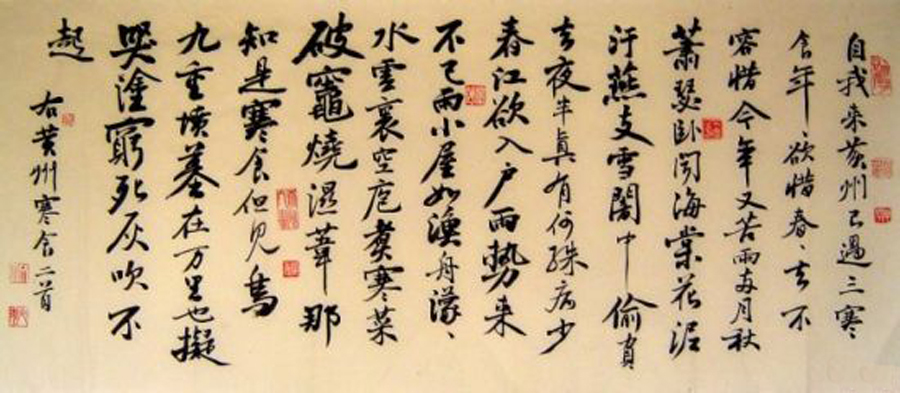 自我来黄州已過三寒
食年、欲惜春、去不
容惜今年又苦雨两月秋
蕭瑟卧闻海棠花泥
汙燕支雪闇中偷負
去夜半真有何殊病少
春江欲入户雨勢来
不已雨小屋如漁舟濛、
水雲裏空庖煮寒菜
破竈燒濕葦那
知是寒食但見烏
九重墳墓在万里也擬
哭塗窮死灰吹不
起
右黄州寒食二首